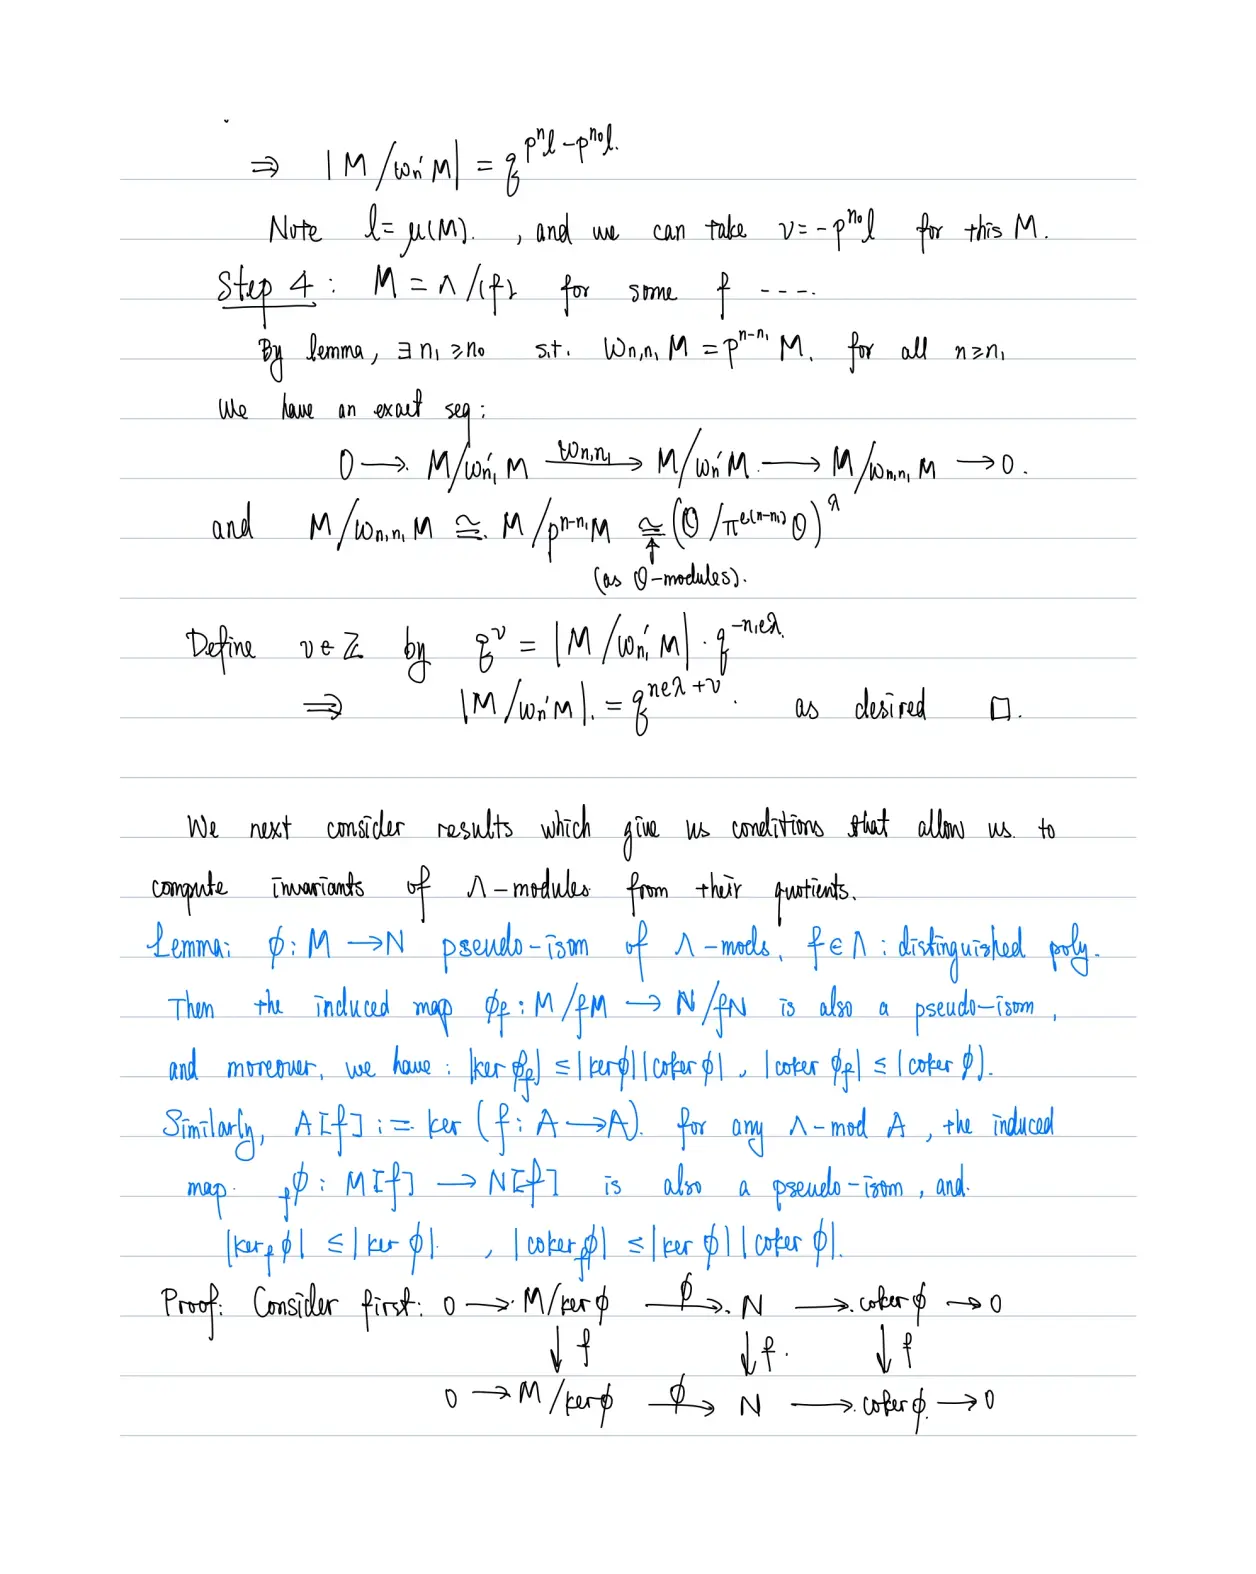 ⇒ |M/ωₙ'M| = q^{pⁿl - p^{n₀}l}.
Note l = μ(M). , and we can take ν = -p^{n₀}l for this M.
Step 4 : M = Λ/(f) for some f ----.
By lemma, ∃ n₁ ≥ n₀ s.t. ω_{n,n₁} M = p^{n-n₁} M. for all n ≥ n₁
We have an exact seq :
0 → M/ω'_{n₁} M —ω_{n,n₁}→ M/ωₙ'M → M/ω_{n,n₁} M → 0.
and M/ω_{n,n₁} M ≅ M/p^{n-n₁}M ≅ (O/π^{e(n-n₁)}O)^λ
↑
(as O-modules).
Define ν ∈ ℤ by q^ν = |M/ω'_{n₁} M| · q^{-n₁eλ}.
⇒ |M/ωₙ'M|. = q^{neλ+ν}. as desired □.
We next consider results which give us conditions that allow us to
compute invariants of Λ-modules from their quotients.
Lemma: φ: M → N pseudo-isom of Λ-mods, f ∈ Λ : distinguished poly.
Then the induced map φ_f : M/fM → N/fN is also a pseudo-isom,
and moreover, we have : |ker φ_f| ≤ |ker φ||coker φ|, |coker φ_f| ≤ |coker φ|.
Similarly, A[f] := ker (f: A → A). for any Λ-mod A, the induced
map. _fφ : M[f] → N[f] is also a pseudo-isom, and.
|ker _fφ| ≤ |ker φ|. , |coker _fφ| ≤ |ker φ||coker φ|.
Proof: Consider first: 0 → M/ker φ —φ→ N → coker φ → 0
↓ f ↓ f. ↓ f
0 → M/ker φ —φ→ N → coker φ. → 0